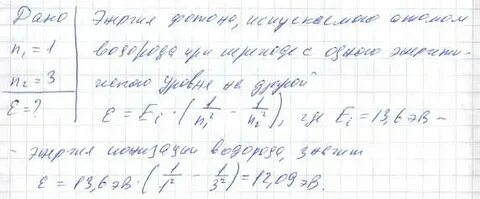 Дано
n₁ = 1
n₂ = 3
ε = ?
Энергия фотона, испускаемого атомом
водорода при переходе с одного энергети-
ческого уровня на другой
ε = Eᵢ · (1/n₁² - 1/n₂²), где Eᵢ = 13,6 эВ -
- энергия ионизации водорода, значит
ε = 13,6 эВ · (1/1² - 1/3²) = 12,09 эВ.